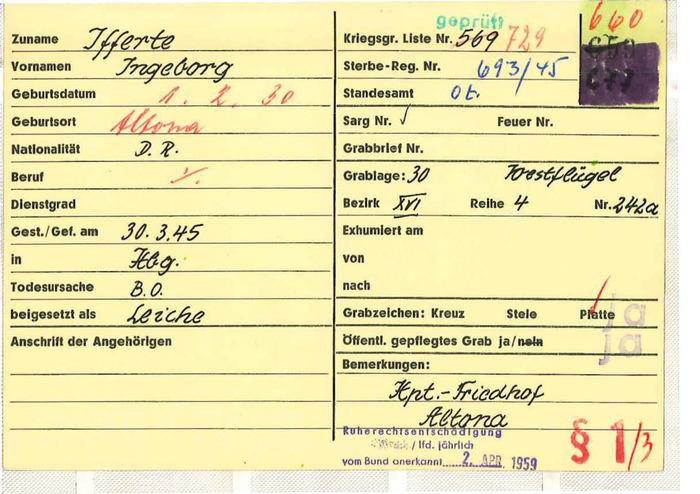 Zuname Ifferte
Vornamen Ingeborg
Geburtsdatum 1. 2. 30
Geburtsort Altona
Nationalität D. R.
Beruf ./.
Dienstgrad
Gest./Gef. am 30.3.45
in Hbg.
Todesursache B.O.
beigesetzt als Leiche
Anschrift der Angehörigen
geprüft
Kriegsgr. Liste Nr. 569 729
660
679
Sterbe-Reg. Nr. 693/45
Standesamt Ot.
Sarg Nr. √ Feuer Nr.
Grabbrief Nr.
Grablage: 30 Westflügel
Bezirk XVI Reihe 4 Nr. 242a
Exhumiert am
von
nach
Grabzeichen: Kreuz Stele Platte
ja
Öffentl. gepflegtes Grab ja/nein
ja
Bemerkungen:
Hpt.-Friedhof
Altona
Ruherechtsentschädigung
/ lfd. jährlich
vom Bund anerkannt 2. APR. 1959
§ 1/3